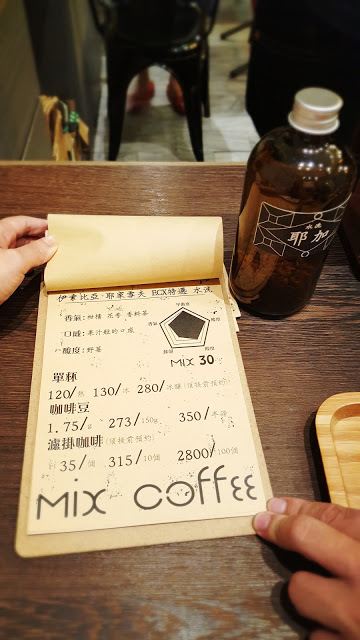 伊索比亞 耶家雪夫 ECX特選 水洗
香氣:柑橘 花香 香料茶
口感:果汁般的口感
酸度:野薑
平衡度
香氣
酸度
甜度
MIX 30
單杯
120/熱 130/冰 280/冰釀(須提前預約)
咖啡豆
1.75/g 273/150g 350/半磅
濾掛咖啡(須提前預約)
35/個 315/10個 2800/100個
MIX COFFEE
水洗
耶加